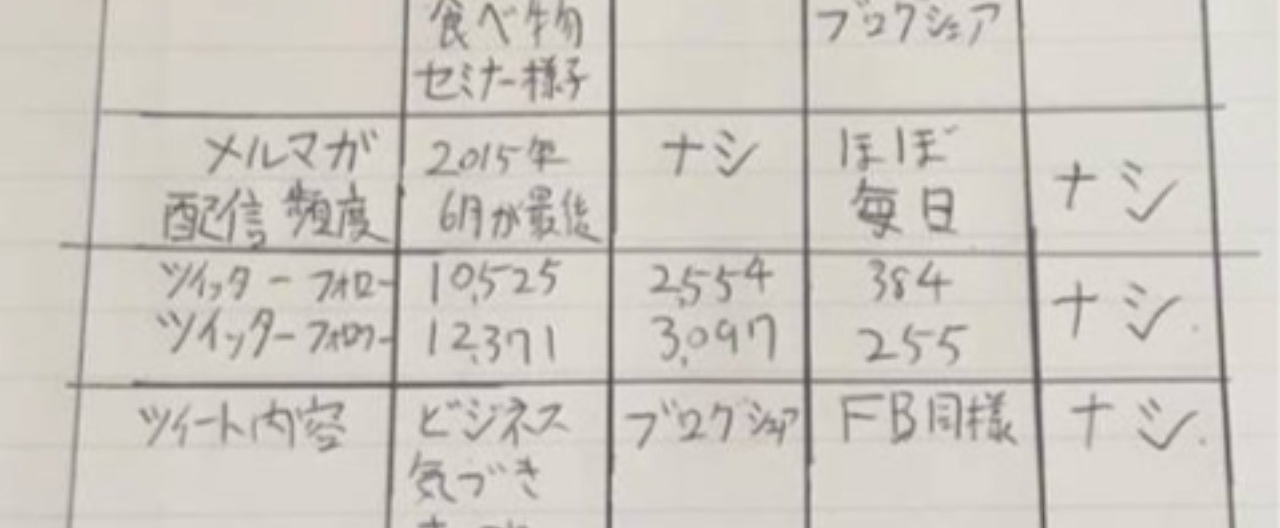 食べ物
セミナー様子
ブログシェア
メルマガ
配信頻度
2015年
6月が最後
ナシ
ほぼ
毎日
ナシ
ツイッターフォロー
ツイッターフォロワー
10,525
12,371
2,554
3,097
384
255
ナシ.
ツイート内容
ビジネス
気づき
ブログシェア
FB同様
ナシ.